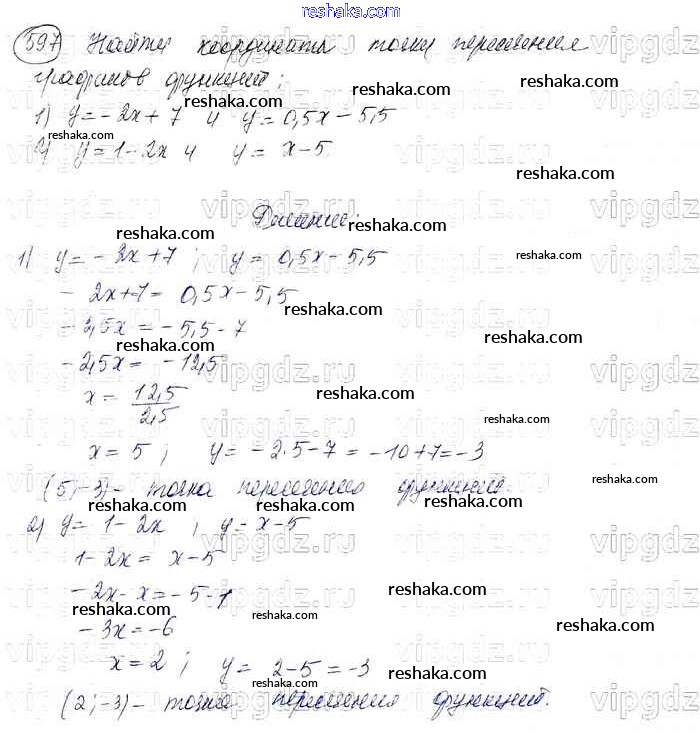 reshaka.com
597 Найти координаты точки пересечения
графиков функций:
reshaka.com
1) y = -2x + 7 и y = 0,5x - 5,5
reshaka.com
reshaka.com
2) y = 1 - 2x и y = x - 5
reshaka.com
Решение:
reshaka.com
1) y = -2x + 7 ; y = 0,5x - 5,5
reshaka.com
-2x + 7 = 0,5x - 5,5
reshaka.com
-2,5x = -5,5 - 7
reshaka.com
reshaka.com
-2,5x = -12,5
x = 12,5
2,5
reshaka.com
reshaka.com
x = 5 ; y = -2·5-7 = -10+7=-3
reshaka.com
(5;-3) - точка пересечения функций.
reshaka.com reshaka.com
2) y = 1 - 2x , y = x - 5
reshaka.com
1 - 2x = x - 5
-2x - x = -5 - 1
reshaka.com
reshaka.com
reshaka.com
-3x = -6
reshaka.com
x = 2 ; y = 2-5 = -3
reshaka.com
reshaka.com
(2;-3) - точка пересечения функций.
reshaka.com
vipgdz.ru